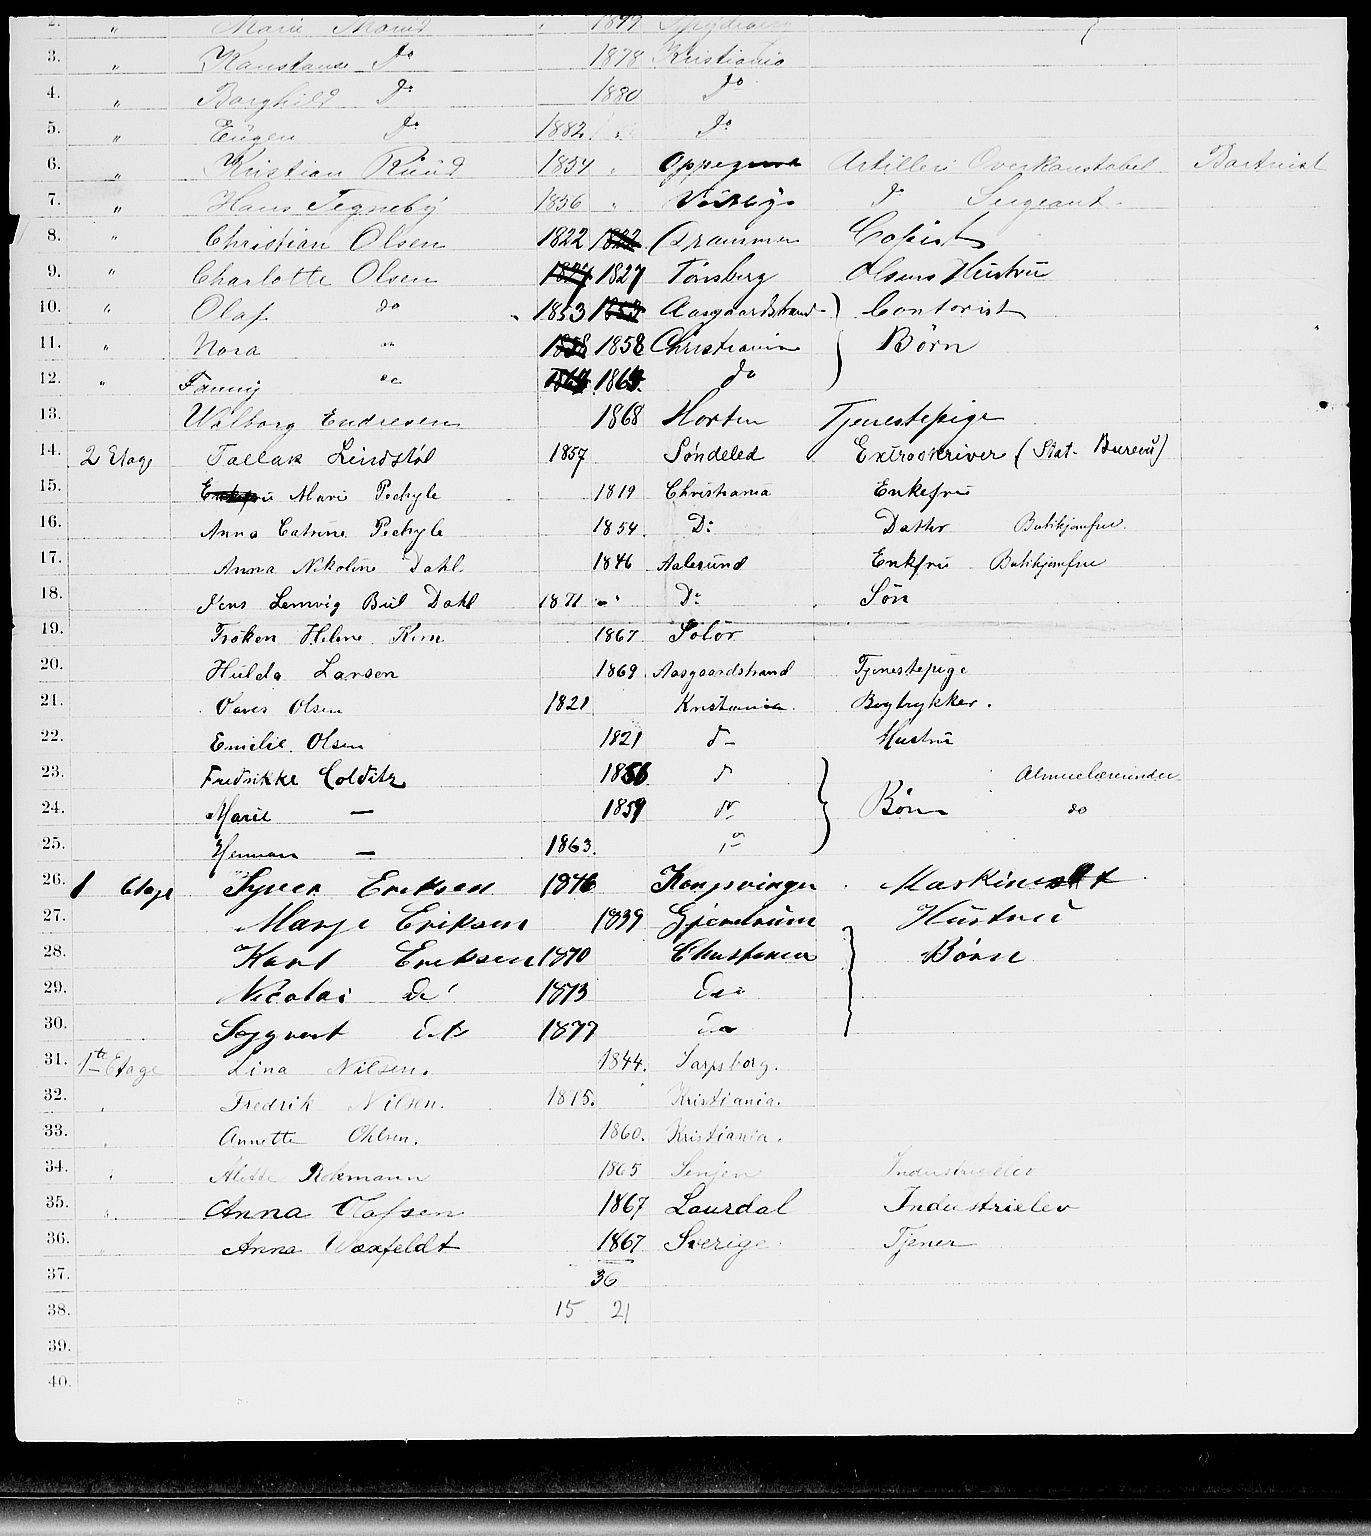 2. " Marie 1877
3. " Konstanse Do 1878 Kristiania
4. " Borghild Do 1880 Do
5. " Eugen Do 1882 " Do
6. " Kristian Ruud 1854 " Oppegaard Artilleri Overkonstabel
7. " Hans Tegneby 1856 " Vestby Do Sergeant
8. " Christian Olsen 1822 1822 Drammen Copist
9. " Charlotte Olsen 1827 1827 Tönsberg Olsens Hustru
10. " Olaf do 1853 1853 Aasgaardstrand Contorist
11. " Nora " 1858 1858 Christiania Børn
12. " Fanny do 1863. do
13. Valborg Endresen 1868 Horten Tjenestepige
14. 2 Etage Tallak Lindstøl 1857 Søndeled Extraskriver (Stat. Bureau)
15. Enkefru Mari Pechyle 1819 Christiania Enkefru
16. Anna Catrine Pechyle 1854. Do Datter Butikjomfru
17. Anna Nikoline Dahl 1846 Aalesund Enkfru Butikjomfru
18. Jens Lemvig Bul Dahl 1871 " Do Søn
19. Frøken Helene 1867 Solör
20. Hulda Larsen 1869 Aasgaardstrand Tjenestepige
21. Olsen 1821 Kristiania. Bogtrykker.
22. Emilie Olsen 1821 d- Hustru
23. Fredrikke Colditz 1856 d Almuelærerinde
24. Marie — 1859 do Børn do
25. Herman — 1863. d-
26. 1 Etage Syver Eriksen 1846 Kongsvinger Maskinest
27. Marje Eriksen 1839 Gjerdrum Hustru
28. Karl Eriksen 1870 Christania Børn
29. Nicolai do 1873 Do
30. Sygvart do 1877 Do
31. 1te Etage Lina Nilsen. 1844. Sarpsborg.
32. " Fredrik Nilsen. 1875. Kristiania.
33. " Annette Ohlsen. 1860. Kristiania.
34. " Alette Rokmann 1865 Senjen Industrielev
35. " Anna Olafsen 1867 Laurdal Industrielev
36. " Anna Waxfeldt 1867 Sverige Tjener
37. 36
38. 15 21
39.
40.